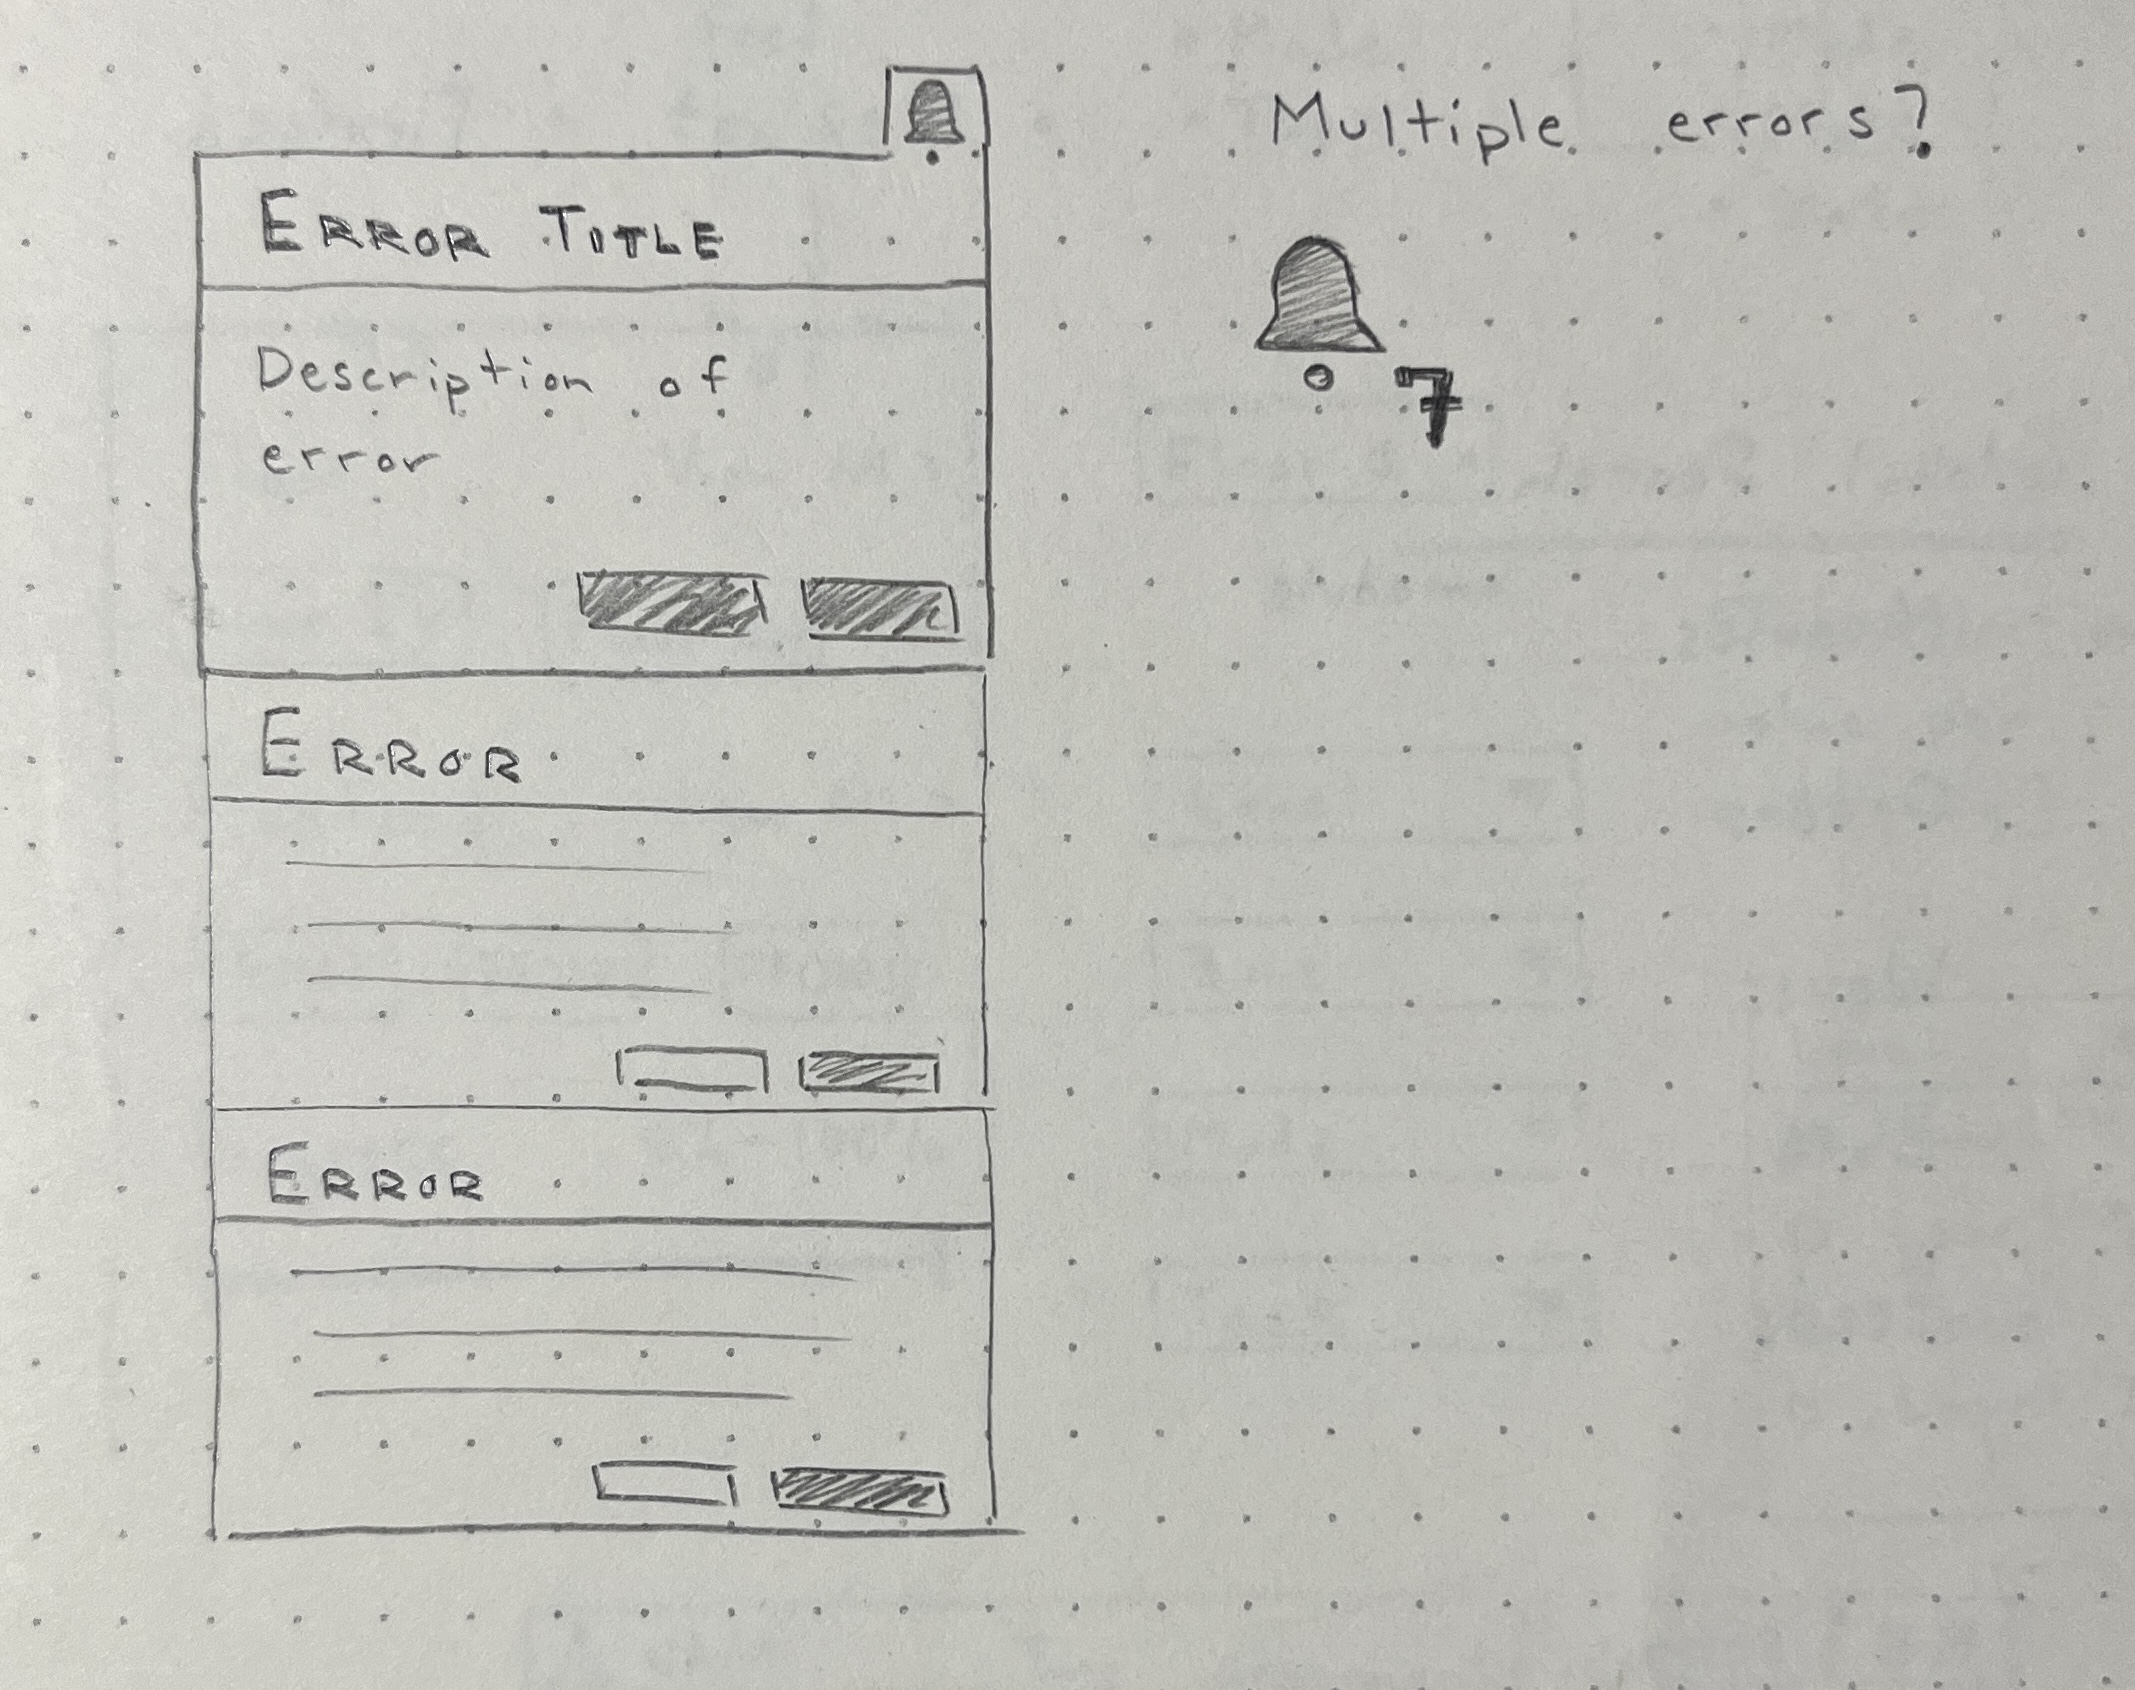 ERROR TITLE
Description of
error
ERROR
ERROR
Multiple errors?
7